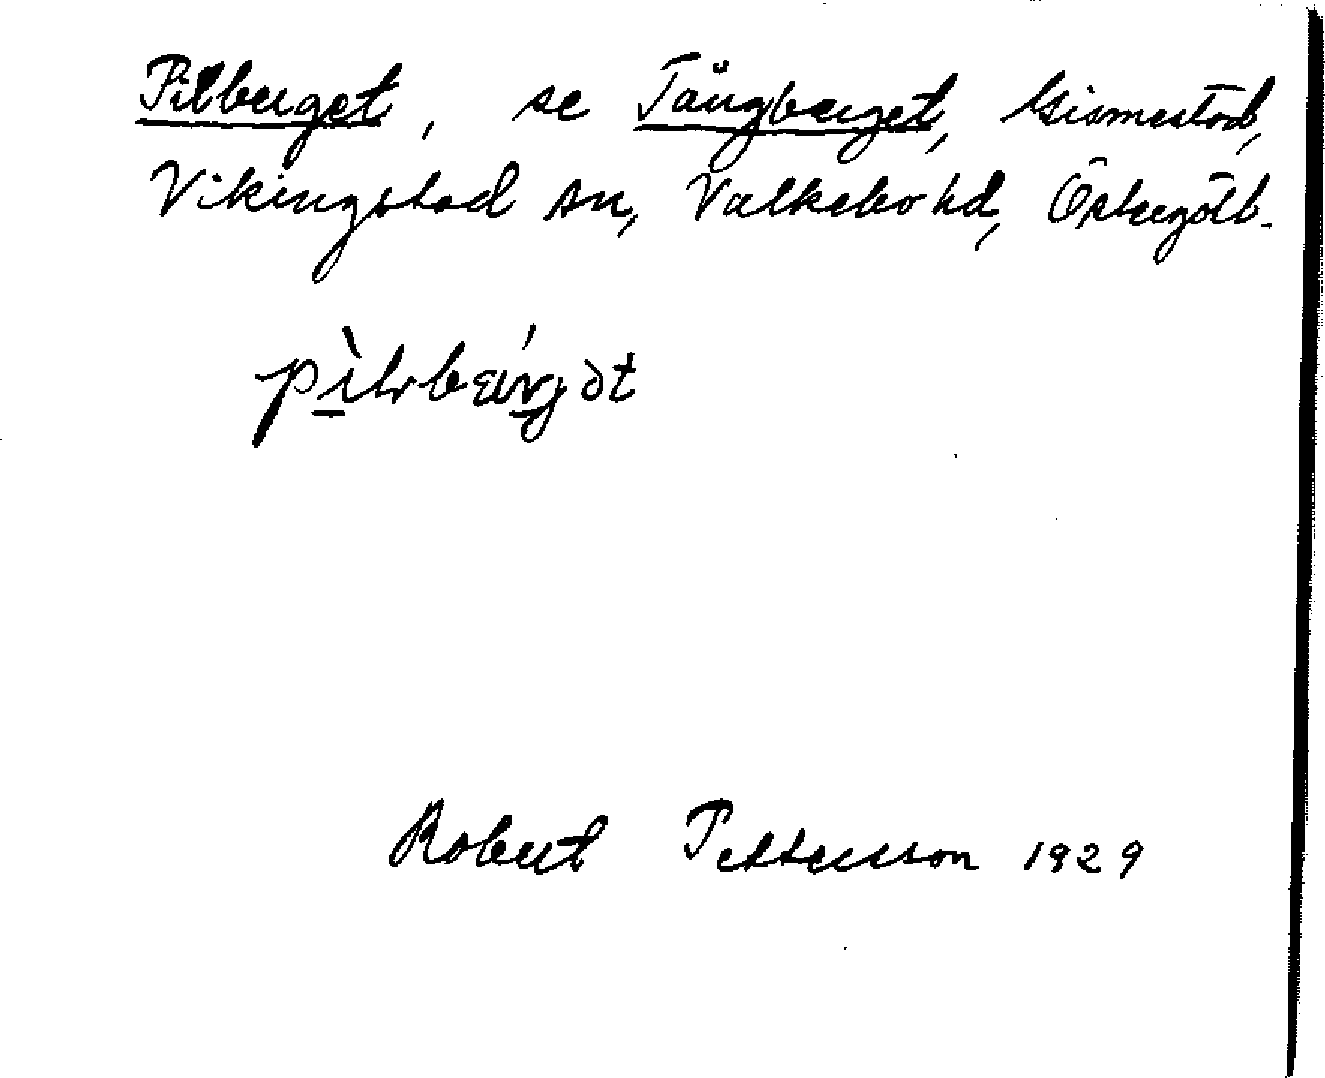 Pilberget, se Tångberget, Gismestad,
Vikingstad sn, Valkebo hd, Östergötl.
Robert Pettersson 1929